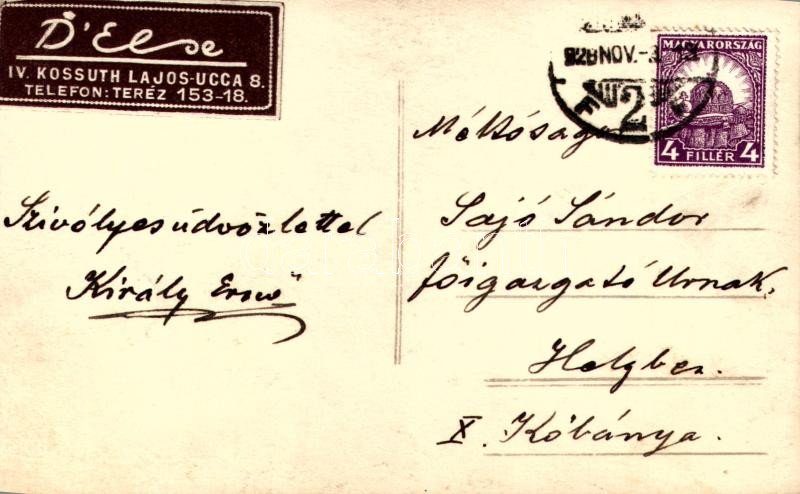 D'Else
IV. KOSSUTH LAJOS-UCCA 8.
TELEFON: TERÉZ 153-18.
928 NOV.-3
2
MAGYARORSZÁG
4 FILLÉR 4
Szivélyes üdvözlettel
Király Ernő
Méltóságos
Sajó Sándor
főigazgató Urnak,
Helyben.
X. Kőbánya.